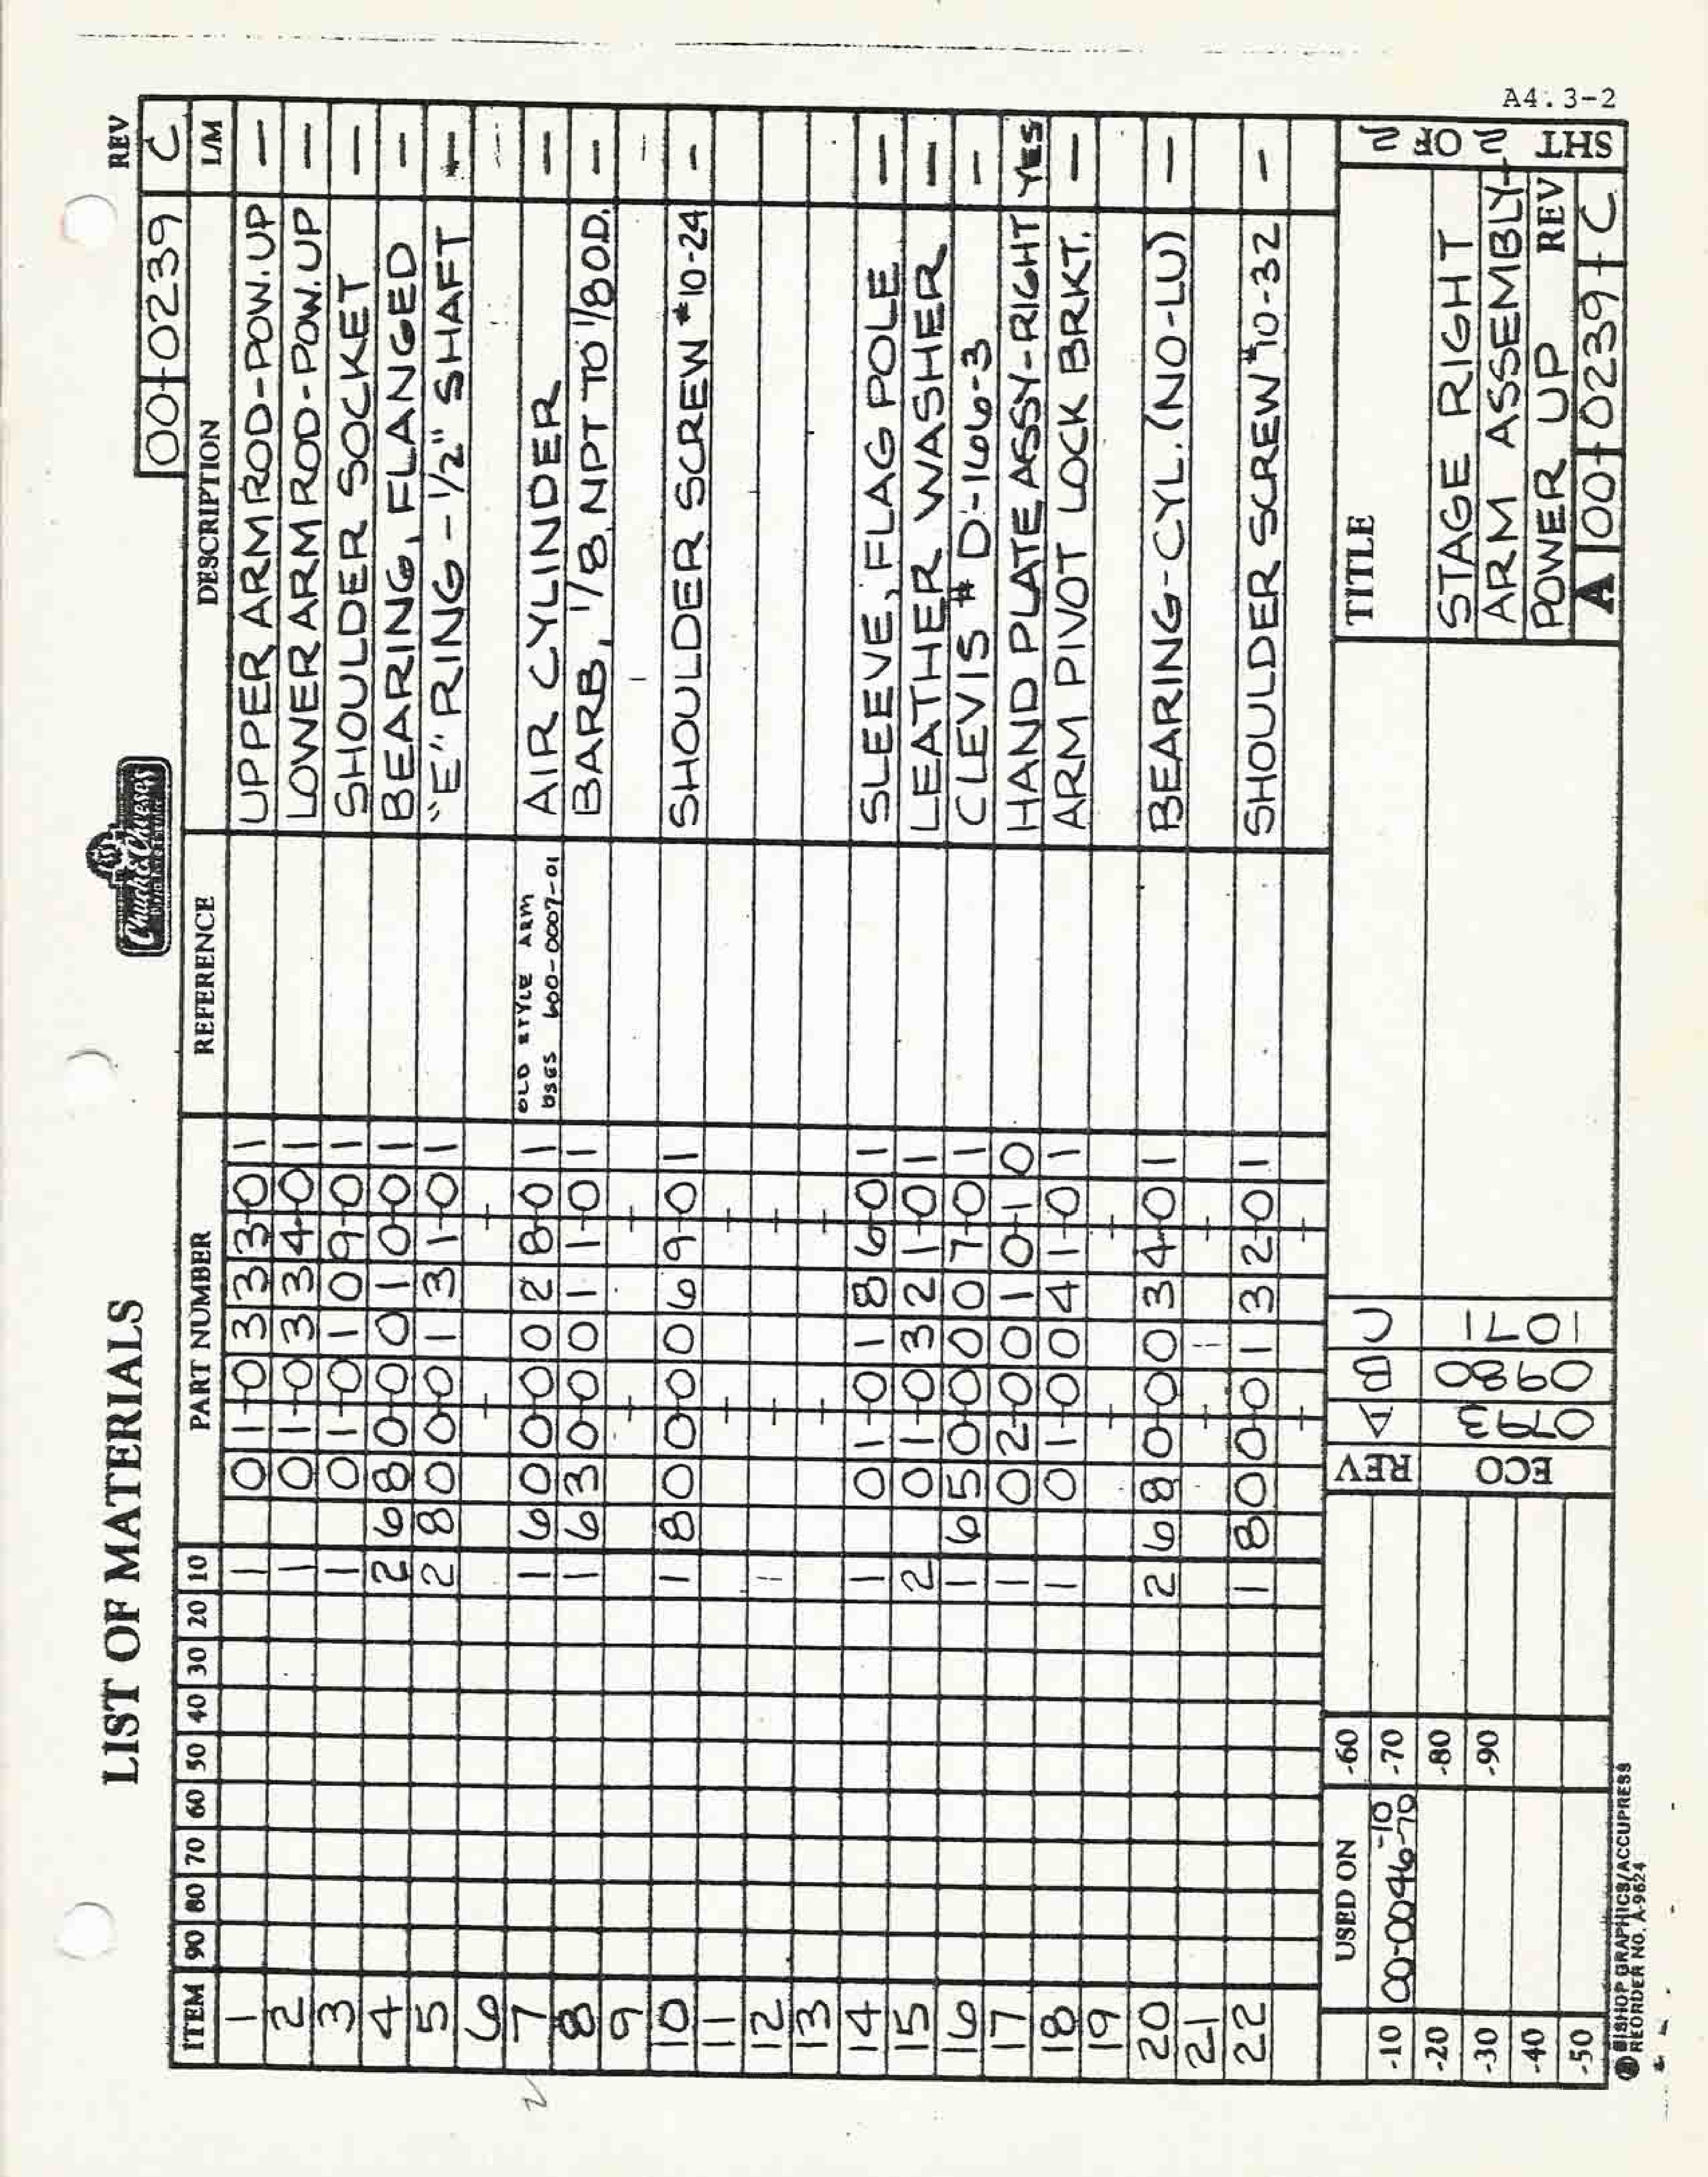 A4.3-2
LIST OF MATERIALS
Chuck E. Cheese's
REV
00-0239 C
ITEM 90 80 70 60 50 40 30 20 10 PART NUMBER REFERENCE DESCRIPTION L/M
1 1 01-0333-01 UPPER ARM ROD-POW.UP —
2 1 01-0334-01 LOWER ARM ROD-POW.UP —
3 1 01-0109-01 SHOULDER SOCKET —
4 2 680-0010-01 BEARING, FLANGED —
5 2 800-0131-01 "E" RING - 1/2" SHAFT —
6
7 1 600-0028-01 OLD STYLE ARM USES 600-0007-01 AIR CYLINDER —
8 1 630-0011-01 BARB, 1/8 NPT TO 1/8 O.D. —
9
10 1 800-0069-01 SHOULDER SCREW #10-24 -
11
12
13
14 1 01-0186-01 SLEEVE, FLAG POLE —
15 2 01-0321-01 LEATHER WASHER —
16 1 650-0007-01 CLEVIS # D-166-3 -
17 1 02-0010-10 HAND PLATE ASSY-RIGHT YES
18 1 01-0041-01 ARM PIVOT LOCK BRKT. —
19
20 2 680-0034-01 BEARING-CYL. (NO-LU) —
21
22 1 800-0132-01 SHOULDER SCREW #10-32 -
USED ON
-10 00-0046-10
-70
-20
-30
-40
-50
-60
-70
-80
-90
REV A B C
ECO 0793 0980 1071
TITLE
STAGE RIGHT
ARM ASSEMBLY-
POWER UP REV
A 00-0239-C
SHT 2 OF 2
BISHOP GRAPHICS/ACCUPRESS
REORDER NO. A-9624